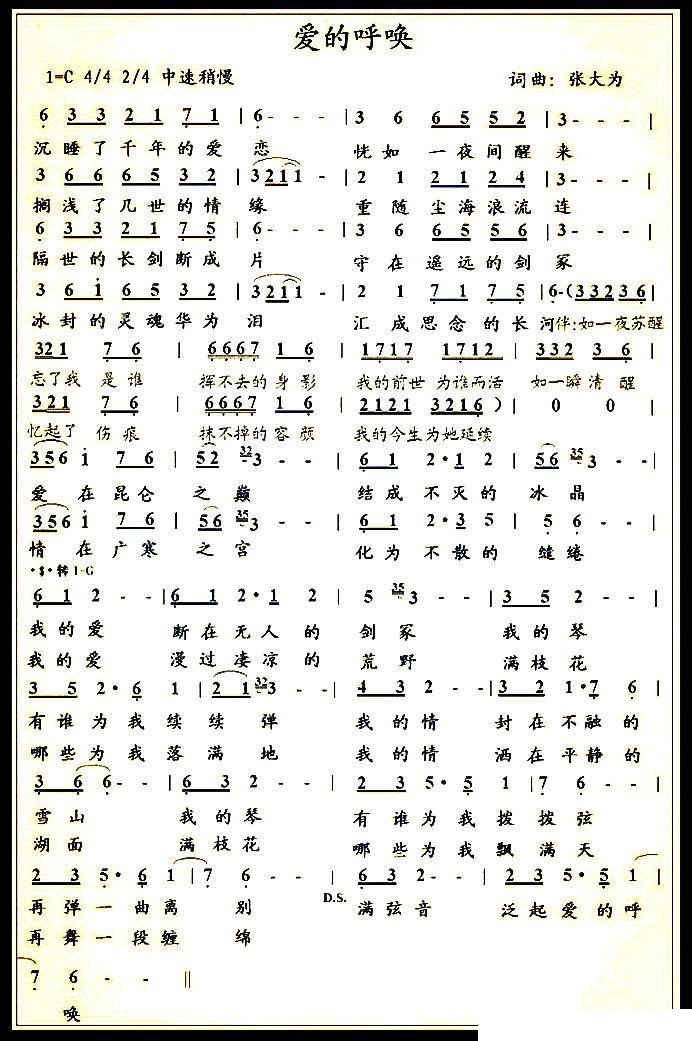 爱的呼唤
1=C 4/4 2/4 中速稍慢 词曲：张大为
6 3 3 2 1 7 1 | 6 - - - | 3 6 6 5 5 2 | 3 - - - |
沉睡了千年的爱 恋 恍如 一夜间醒 来
3 6 6 6 5 3 2 | 3 2 1 1 - | 2 1 2 1 2 4 | 3 - - - |
搁浅了几世的情 缘 重随 尘海浪流 连
6 3 3 2 1 7 5 | 6 - - - | 3 6 6 5 5 6 | 3 - - - |
隔世的长剑断成 片 守在 遥远的剑 冢
3 6 i 6 5 3 2 | 3 2 1 1 - | 2 1 7 1 7 5 | 6 - ( 3 3 2 3 6 |
冰封的灵魂华为 泪 汇成思念的长 河伴:如一夜苏醒
3 2 1 7 6 | 6 6 6 7 1 6 | 1 7 1 7 1 7 1 2 | 3 3 2 3 6 |
忘了我 是谁 挥不去的身影 我的前世 为谁而活 如一瞬清 醒
3 2 1 7 6 | 6 6 6 7 1 6 | 2 1 2 1 3 2 1 6 ) | 0 0 |
忆起了 伤痕 抹不掉的容颜 我的今生为她延续
3 5 6 i 7 6 | 5 2 32 3 - - | 6 1 2 · 1 2 | 5 6 35 3 - - |
爱 在昆仑 之 巅 结成 不灭的 冰晶
3 5 6 i 7 6 | 5 6 35 3 - - | 6 1 2 · 3 5 | 5 6 - - |
情 在广寒 之宫 化为 不散的 缱绻
·$·转 1=G
6 1 2 - - | 6 1 2 · 1 2 | 5 35 3 - - | 3 5 2 - - |
我的爱 断在无人的 剑冢 我的琴
我的爱 漫过凄凉的 荒野 满枝花
3 5 2 · 6 1 | 2 1 32 3 - - | 4 3 2 - - | 3 2 1 · 7 6 |
有谁为我续 续 弹 我的情 封在不融的
哪些为我落 满 地 我的情 洒在平静的
3 6 6 - - | 6 3 2 - - | 2 3 5 · 5 1 | 7 6 - - |
雪山 我的琴 有谁为我拨 拨弦
湖面 满枝花 哪些为我飘 满天
2 3 5 · 6 1 | 7 6 - - | 6 3 2 - - | 2 3 5 · 5 1 |
D.S.
再弹一曲离 别 满弦音 泛起爱的呼
再舞一段缠 绵
7 6 - - ‖
唤